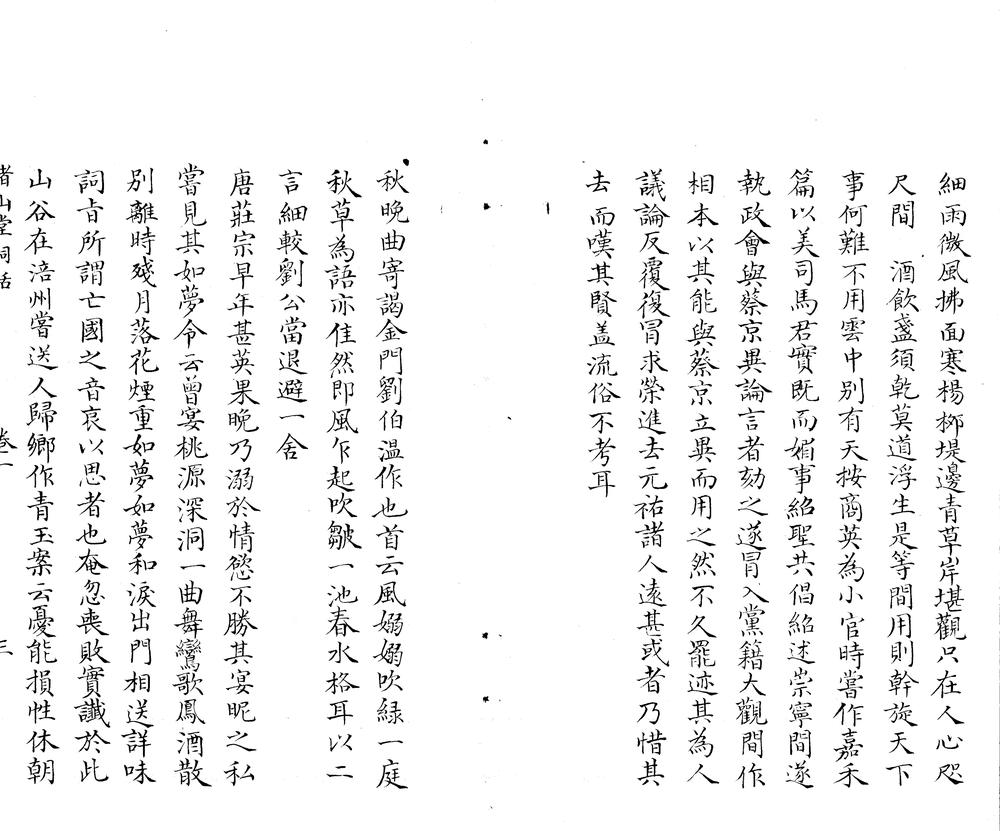 細雨微風拂面寒楊栁堤邊青草岸堪觀只在人心咫
尺間　酒飲盞須乾莫道浮生是等間用則幹旋天下
事何難不用雲中别有天按商英為小官時嘗作嘉禾
篇以美司馬君實既而媚事紹聖共倡紹述崇寧間遂
執政會與蔡京異論言者劾之遂冐入黨籍大觀間作
相本以其能與蔡京立異而用之然不久罷迹其為人
議論反覆復冐求榮進去元祐諸人遠甚或者乃惜其
去而嘆其賢盖流俗不考耳
秋晚曲寄謁金門劉伯温作也首云風嫋嫋吹緑一庭
秋草為語亦佳然即風乍起吹皺一池春水格耳以二
言細較劉公當退避一舍
唐莊宗早年甚英果晚乃溺於情慾不勝其宴昵之私
嘗見其如夢令云曾宴桃源深洞一曲舞鸞歌鳳酒散
别離時殘月落花煙重如夢如夢和淚出門相送詳味
詞㫖所謂亡國之音哀以思者也奄忽喪敗實讖於此
山谷在涪州嘗送人歸鄉作青玉案云憂能損性休朝
渚山堂詞話　卷一　三